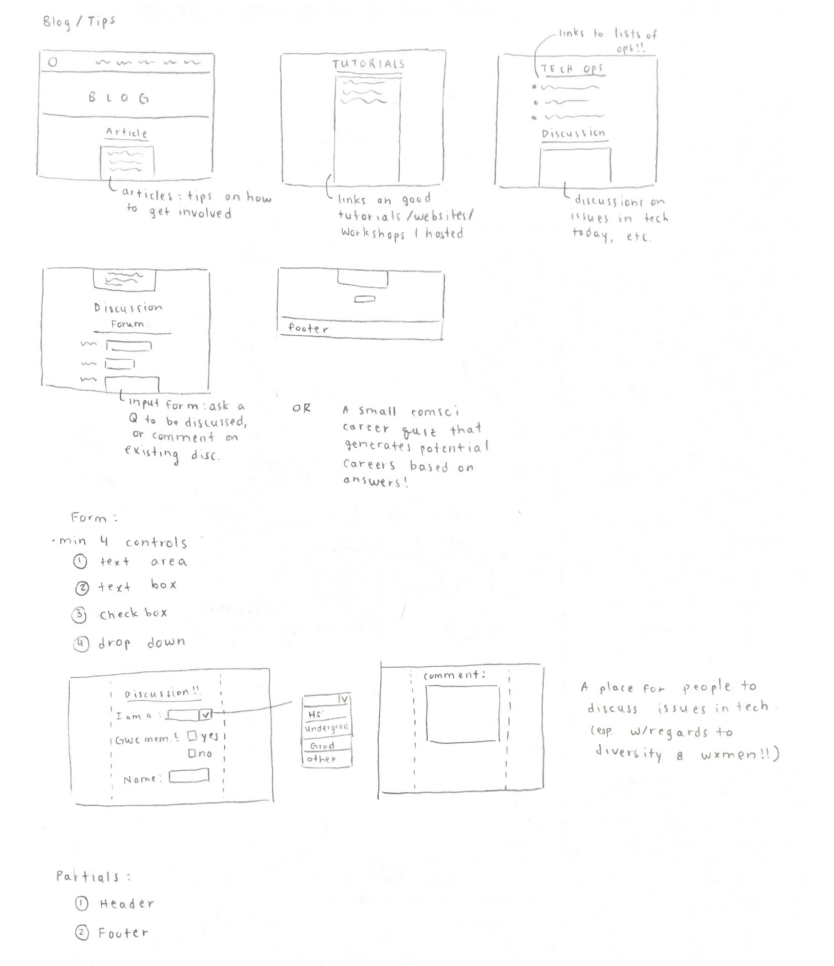 Blog / Tips
links to lists of
ops!!
BLOG
Article
articles: tips on how
to get involved
TUTORIALS
links on good
tutorials/websites/
workshops I hosted
TECH OPS
Discussion
discussions on
issues in tech
today, etc.
Discussion
Forum
input form: ask a
Q to be discussed,
or comment on
existing disc.
footer
OR
A small comsci
career quiz that
generates potential
careers based on
answers!
Form:
· min 4 controls
① text area
② text box
③ check box
④ drop down
Discussion!!
I am a:
GWC mem.?
yes
no
Name:
HS
undergrad
Grad
other
comment:
A place for people to
discuss issues in tech.
(esp. w/regards to
diversity & wxmen!!)
Partials:
① Header
② Footer